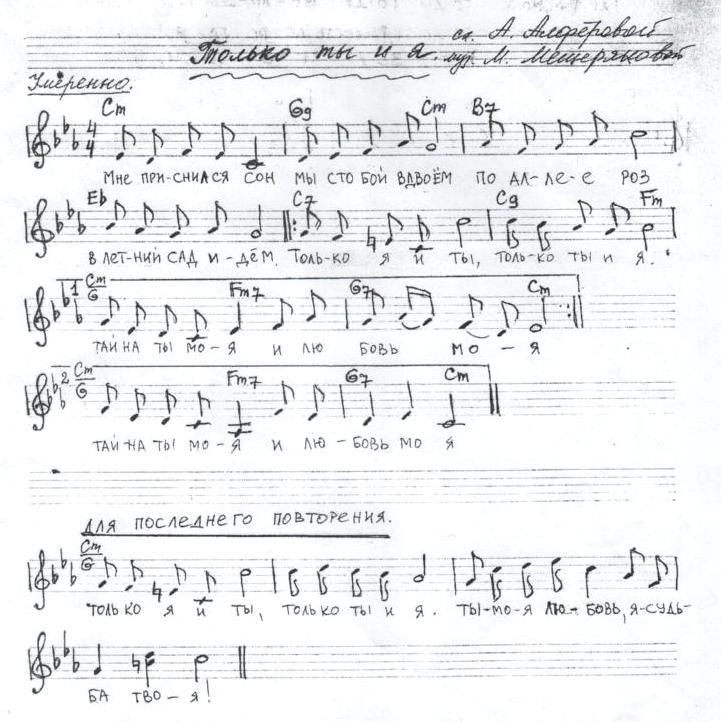 Только ты и я.
сл. А. Алфёровой
муз. М. Мещеряковой
Умеренно.
Cm G9 Cm B7
4 4
МНЕ ПРИ-СНИЛСЯ СОН МЫ СТО БОЙ ВДВОЁМ ПО АЛ-ЛЕ-Е РОЗ
Eb C7 C9 Fm
В ЛЕТ-НИЙ САД И-ДЁМ. ТОЛЬ-КО Я И ТЫ, ТОЛЬ-КО ТЫ И Я.
1 Cm G Fm7 G7 Cm
ТАЙ НА ТЫ МО-Я И ЛЮ БОВЬ МО-Я
2 Cm G Fm7 G7 Cm
ТАЙ-НА ТЫ МО-Я И ЛЮ-БОВЬ МО Я
ДЛЯ ПОСЛЕДНЕГО ПОВТОРЕНИЯ.
Cm G
ТОЛЬ КО Я И ТЫ, ТОЛЬКО ТЫ И Я. ТЫ-МО-Я ЛЮ-БОВЬ, Я-СУДЬ-
БА ТВО-Я!